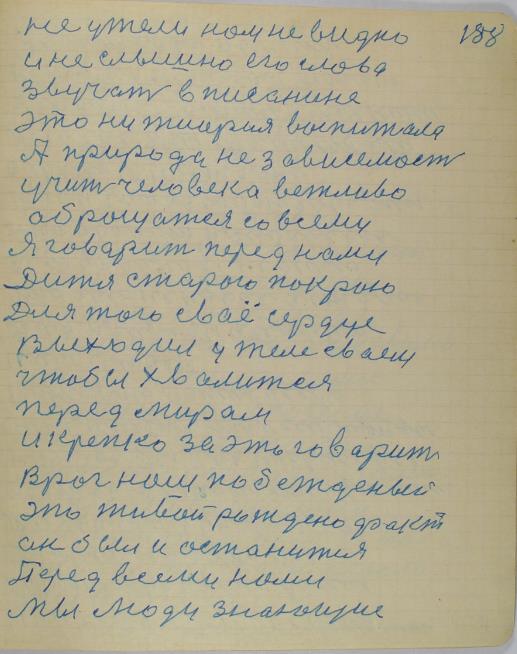 не утели ном не видно 188
и не слышно его слова
звучат в писанине
это ни тиория воспитала
А природа не зависемост
учит человека вежливо
оброщатся со всеми
Я говарит перед нами
Дитя старого покрою
Для того сваё сердце
выходил у теле своем
чтобы хвалится
перед мирам
и крепко за эть говарит
враг нош побежденый
это живой рождено факт
он был и останится
Перед всеми нами
мы люди знающие